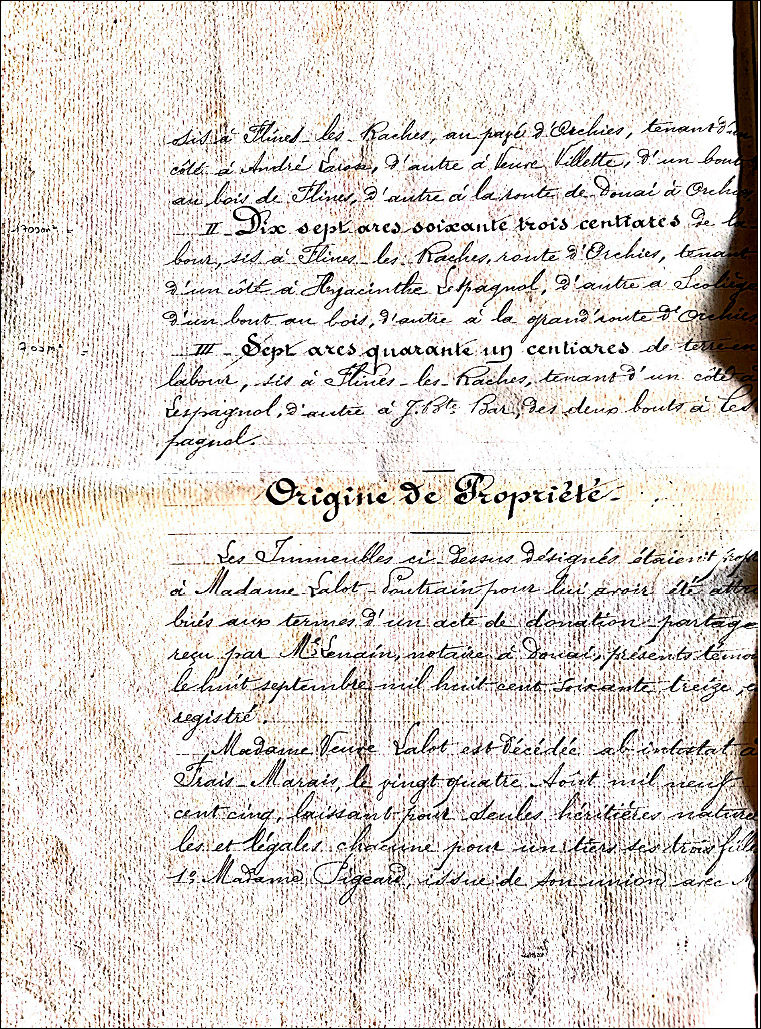 sis à Flines-les-Raches, au pavé d'Orchies, tenant d'un
côté à André Larose, d'autre à Veuve Villette, d'un bout
au bois de Flines, d'autre à la route de Douai à Orchies
II - Dix sept ares soixante trois centiares de la
bour, sis à Flines-les-Raches, route d'Orchies, tenant
d'un côté à Hyacinthe Lespagnol, d'autre à
d'un bout au bois, d'autre à la grand'route d'Orchies
703m² =
III - Sept ares quarante un centiares de terre en
labour, sis à Flines-les-Raches, tenant d'un côté à
Lespagnol, d'autre à J. Bte Bar, des deux bouts à Les
pagnol.
Origine de Propriété -
Les Immeubles ci-dessus désignés étaient
à Madame Lalot-Poutrain pour lui avoir été attri
bués aux termes d'un acte de donation-partage
reçu par Me Lenain, notaire à Douai, présents témoi
le huit septembre mil huit cent soixante treize, en
registré.
Madame Veuve Lalot est décédée ab intestat à
Frais-Marais, le vingt quatre Août mil neuf
cent cinq, laissant pour seules héritières naturel
les et légales chacune pour un tiers ses trois filles
1º Madame Pigeard, issue de son union avec M